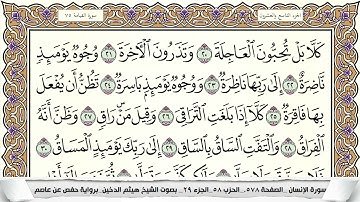 الجزء التاسع والعشرون
سورة القيامة ٧٥
كَلَّا بَلْ تُحِبُّونَ ٱلْعَاجِلَةَ ٢٠ وَتَذَرُونَ ٱلْآخِرَةَ ٢١ وُجُوهٌ يَوْمَئِذٍ
نَّاضِرَةٌ ٢٢ إِلَىٰ رَبِّهَا نَاظِرَةٌ ٢٣ وَوُجُوهٌ يَوْمَئِذٍۭ بَاسِرَةٌ ٢٤ تَظُنُّ أَن يُفْعَلَ
بِهَا فَاقِرَةٌ ٢٥ كَلَّآ إِذَا بَلَغَتِ ٱلتَّرَاقِىَ ٢٦ وَقِيلَ مَنْ رَاقٍ ٢٧ وَظَنَّ أَنَّهُ
ٱلْفِرَاقُ ٢٨ وَٱلْتَفَّتِ ٱلسَّاقُ بِٱلسَّاقِ ٢٩ إِلَىٰ رَبِّكَ يَوْمَئِذٍ ٱلْمَسَاقُ ٣٠
سورة الإنسان _الصفحة ٥٧٨_ الحزب ٥٨_الجزء ٢٩_ بصوت الشيخ هيثم الدخين برواية حفص عن عاصم